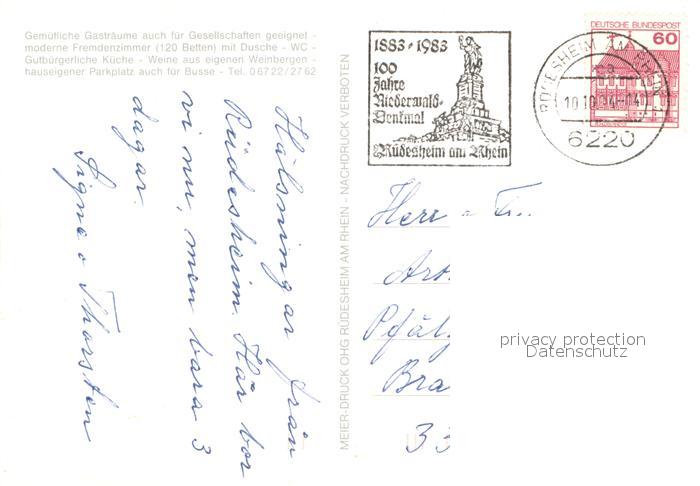 Gemütliche Gasträume auch für Gesellschaften geeignet -
moderne Fremdenzimmer (120 Betten) mit Dusche - WC -
Gutbürgerliche Küche - Weine aus eigenen Weinbergen -
hauseigener Parkplatz auch für Busse - Tel. 0 67 22 / 27 62
Hälsningar från
Rüdesheim. Här bor
vi nu, men bara 3
dagar.
Signe o Thorsten
MEIER-DRUCK OHG RÜDESHEIM AM RHEIN - NACHDRUCK VERBOTEN
1883 · 1983
100
Jahre
Niederwald-
Denkmal
Rüdesheim am Rhein
DEUTSCHE BUNDESPOST
60
RÜDESHEIM AM RHEIN
6220
Herr
Pfälz
Bra
33
privacy protection
Datenschutz